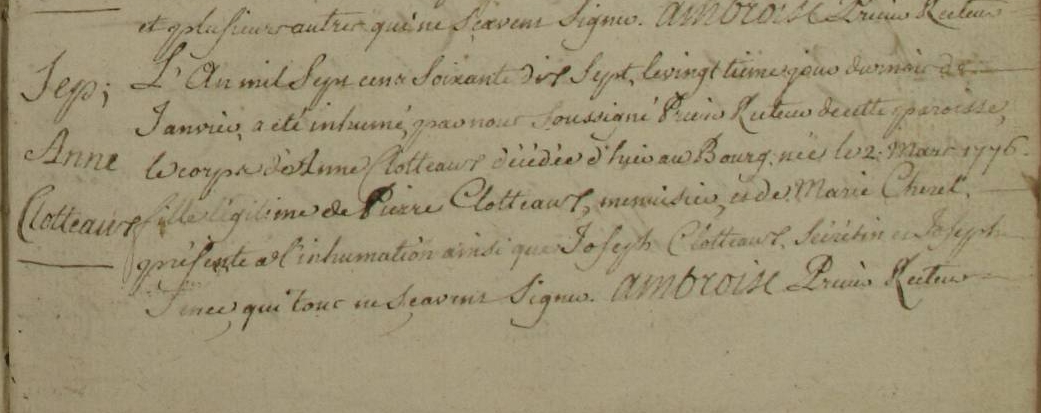 et plusieurs autres qui ne sçavent signer. ambroise Prieur Recteur
Sep;
Anne
Clotteaux
L'An mil sept cent soixante dix sept, le vingtieme jour du mois de
Janvier, a été inhumé, par nous soussigné Prieur Recteur de cette paroisse,
le corps d'Anne Clotteaux décédée d'hier au Bourg, née le 2. Mars 1776.
fille légitime de Pierre Clotteaux, menuisier, et de Marie Cherel.
présents a l'inhumation ainsi que Joseph Clotteaux, et Joseph
qui tous ne sçavent signer. ambroise Prieur Recteur